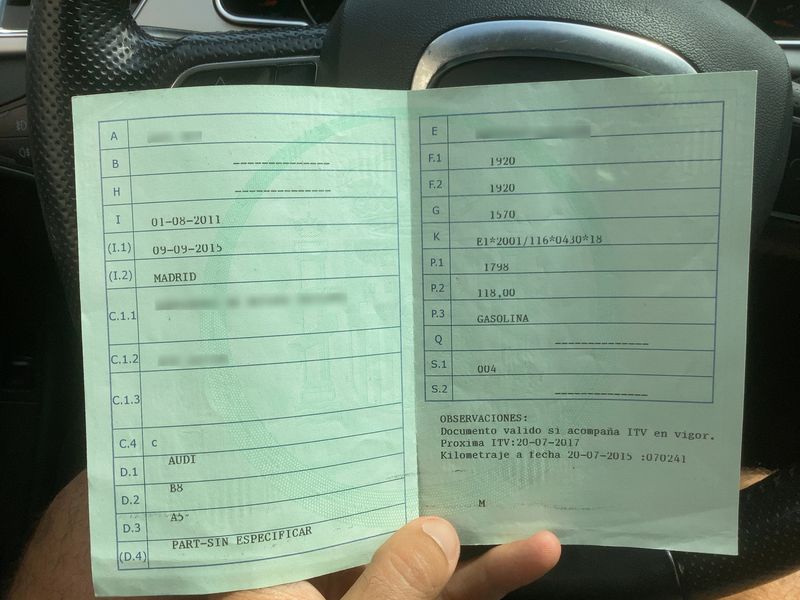 A
B -------------
H -------------
I 01-08-2011
(I.1) 09-09-2015
(I.2) MADRID
C.1.1
C.1.2
C.1.3
C.4 C
D.1 AUDI
D.2 B8
D.3 A5
(D.4) PART-SIN ESPECIFICAR
E
F.1 1920
F.2 1920
G 1570
K E1*2001/116*0430*18
P.1 1798
P.2 118,00
P.3 GASOLINA
Q -------------
S.1 004
S.2 -------------
OBSERVACIONES:
Documento valido si acompaña ITV en vigor.
Proxima ITV:20-07-2017
Kilometraje a fecha 20-07-2015 :070241
M